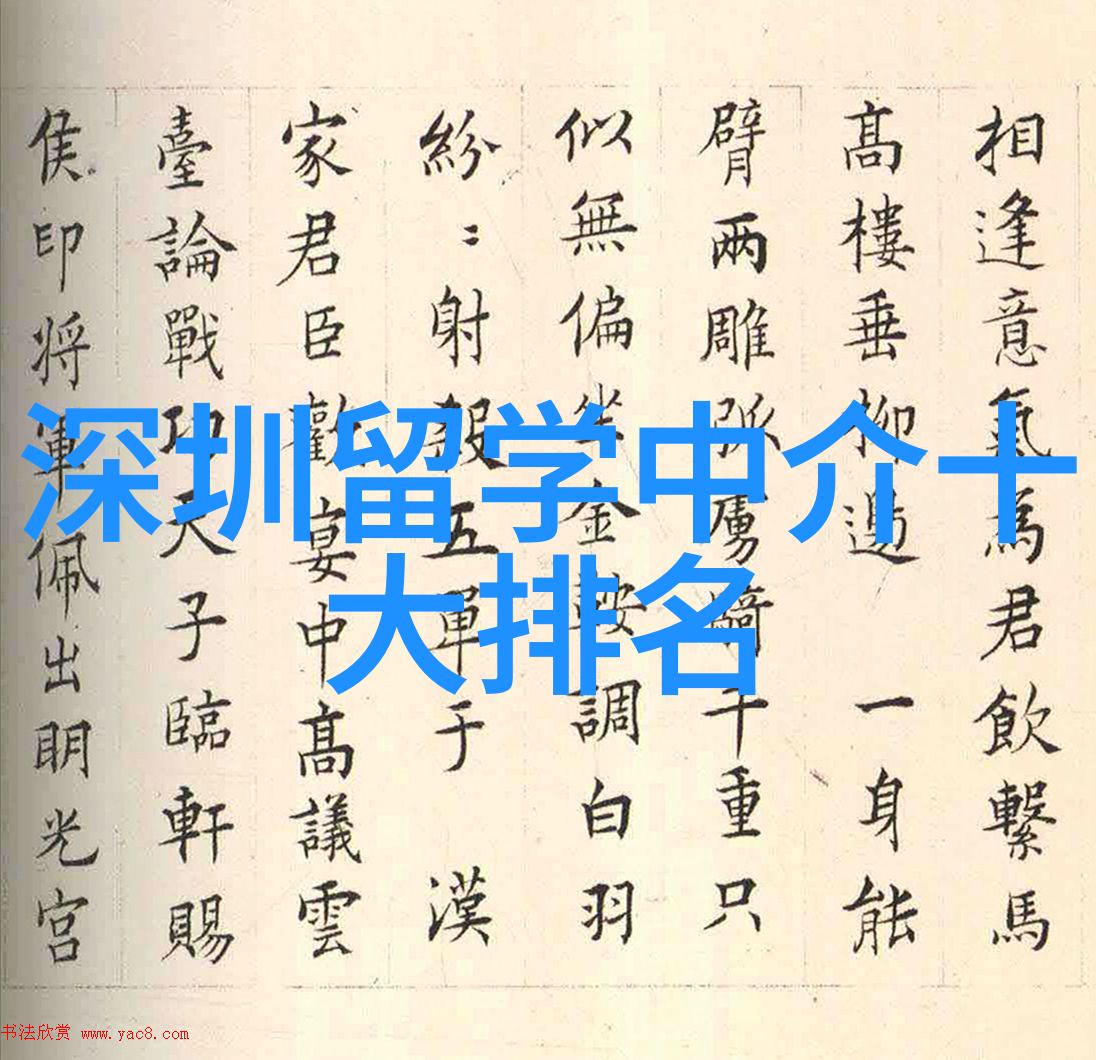 相逢意氣為君飲繫馬
髙樓垂柳邊 一身能
臂兩雕弧虜騎千重只
似無偏坐金鞍調白羽
紛〻射殺五單于 漢
家君臣歡宴中髙議雲
臺論戰功天子臨軒賜
侯印将軍佩出明光宮
深圳留学中介十
大排名
书法欣赏 www.yac8.com